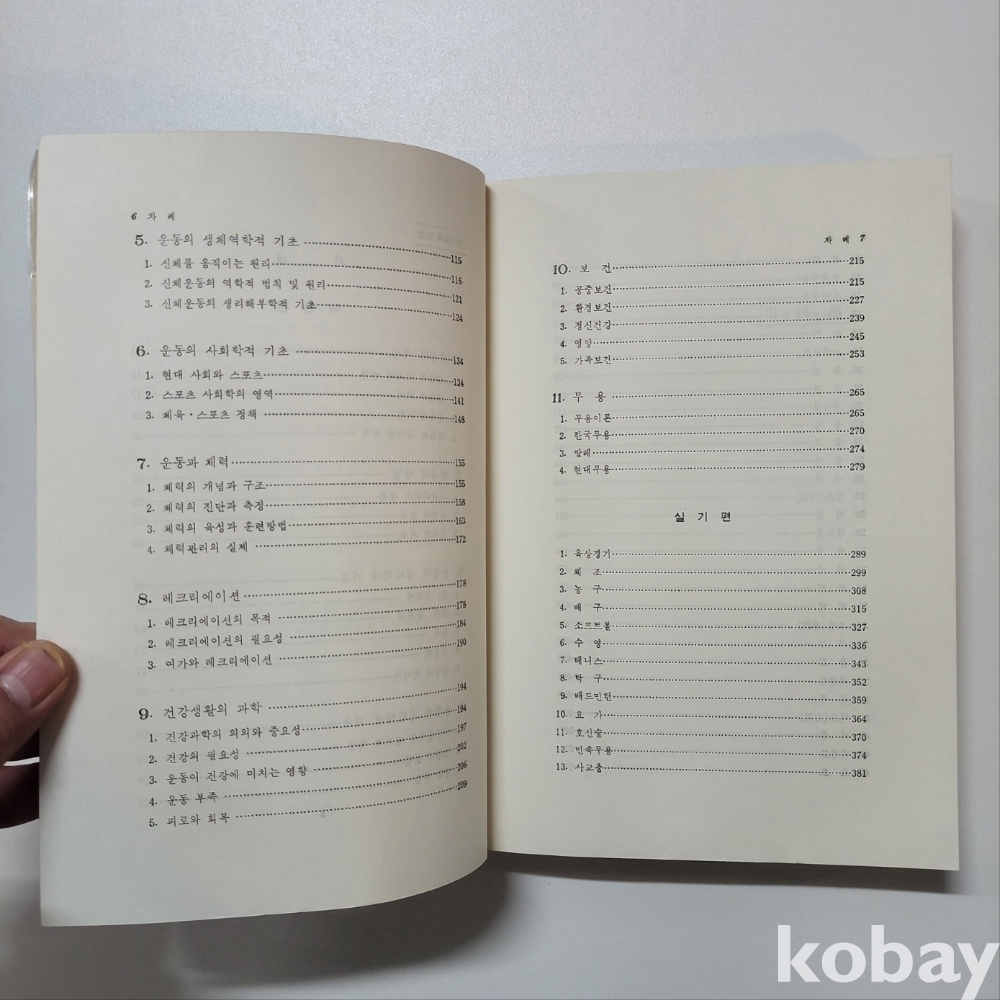 6 차 례
5. 운동의 생체역학적 기초 115
1. 신체를 움직이는 원리 116
2. 신체운동의 역학적 법칙 및 원리 121
3. 신체운동의 생리해부학적 기초 124
6. 운동의 사회학적 기초 134
1. 현대 사회와 스포츠 134
2. 스포츠 사회학의 영역 141
3. 체육·스포츠 정책 148
7. 운동과 체력 155
1. 체력의 개념과 구조 155
2. 체력의 진단과 측정 158
3. 체력의 육성과 훈련방법 163
4. 체력관리의 실제 172
8. 레크리에이션 178
1. 레크리에이션의 목적 178
2. 레크리에이션의 필요성 184
3. 여가와 레크리에이션 190
9. 건강생활의 과학 194
1. 건강과학의 의의와 중요성 194
2. 건강의 필요성 197
3. 운동이 건강에 미치는 영향 202
4. 운동 부족 206
5. 피로와 회복 209
차 례 7
10. 보 건 215
1. 공중보건 215
2. 환경보건 227
3. 정신건강 239
4. 영양 245
5. 가족보건 253
11. 무 용 265
1. 무용이론 265
2. 한국무용 270
3. 발레 274
4. 현대무용 279
실 기 편
1. 육상경기 289
2. 체 조 299
3. 농 구 308
4. 배 구 315
5. 소프트볼 327
6. 수 영 336
7. 테니스 343
8. 탁 구 352
9. 배드민턴 359
10. 요 가 364
11. 호신술 370
12. 민속무용 374
13. 사교춤 381
kobay